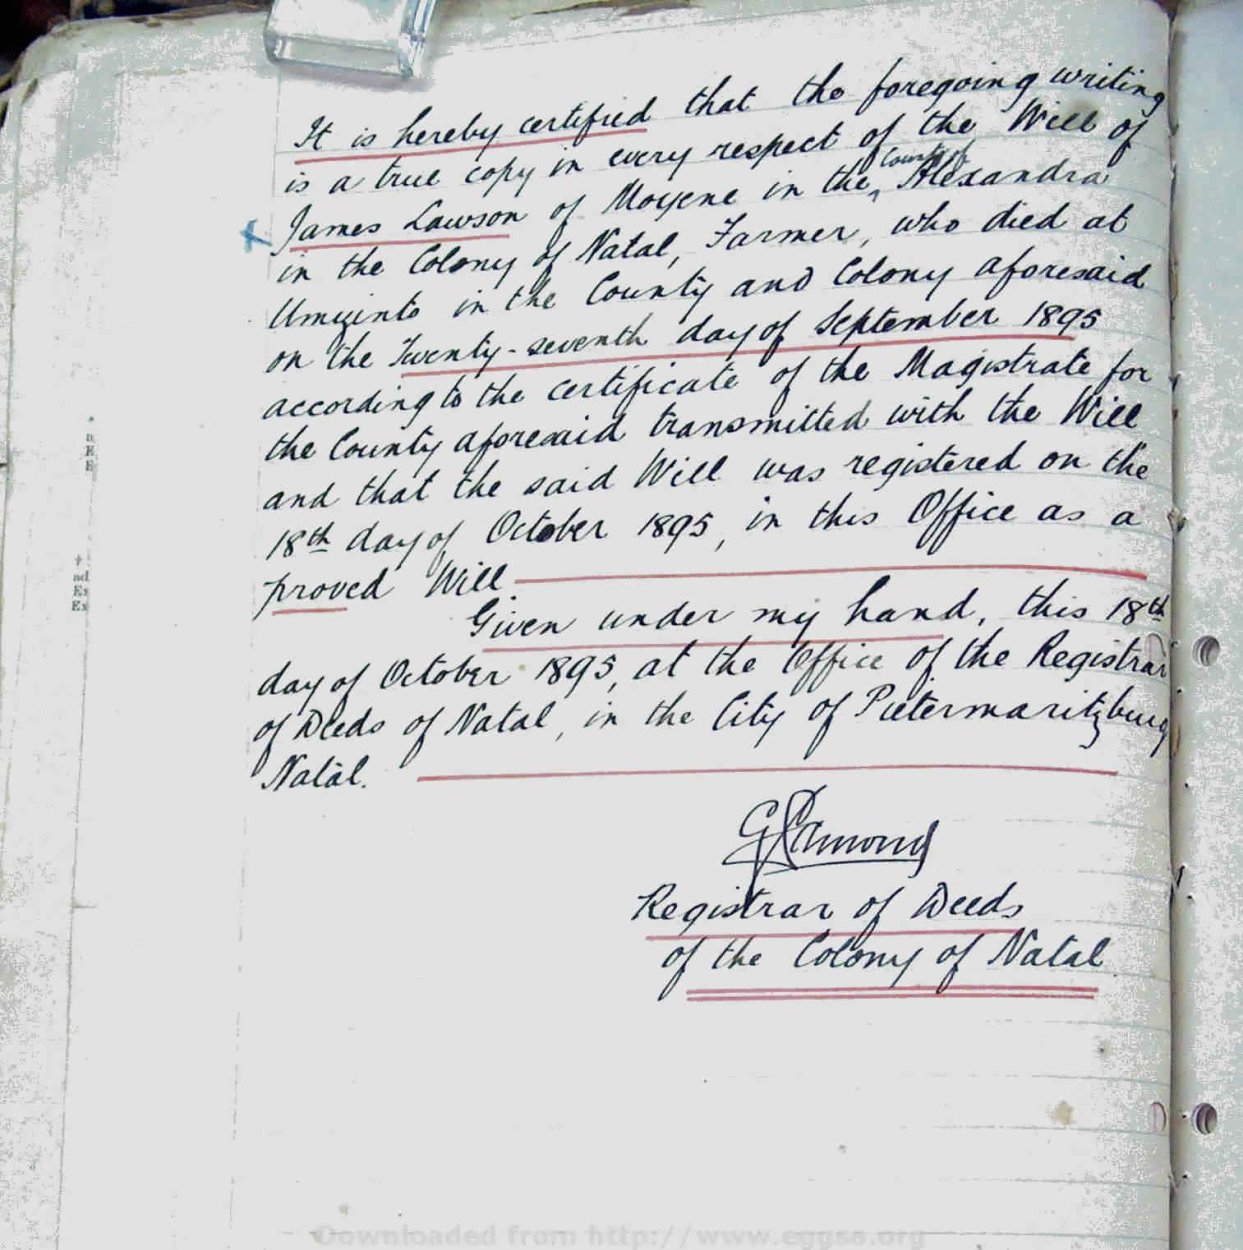 It is hereby certified that the foregoing writing
is a true copy in every respect of the Will of
James Lawson of Moyene in the County of Alexandra
in the Colony of Natal, Farmer, who died at
Umzinto in the County and Colony aforesaid
on the Twenty-seventh day of September 1895
according to the certificate of the Magistrate for
the County aforesaid transmitted with the Will
and that the said Will was registered on the
18th day of October 1895, in this Office as a
proved Will.
Given under my hand, this 18th
day of October 1895, at the Office of the Registrar
of Deeds of Natal, in the City of Pietermaritzburg
Natal.
Registrar of Deeds
of the Colony of Natal
Downloaded from http://www.eggsa.org